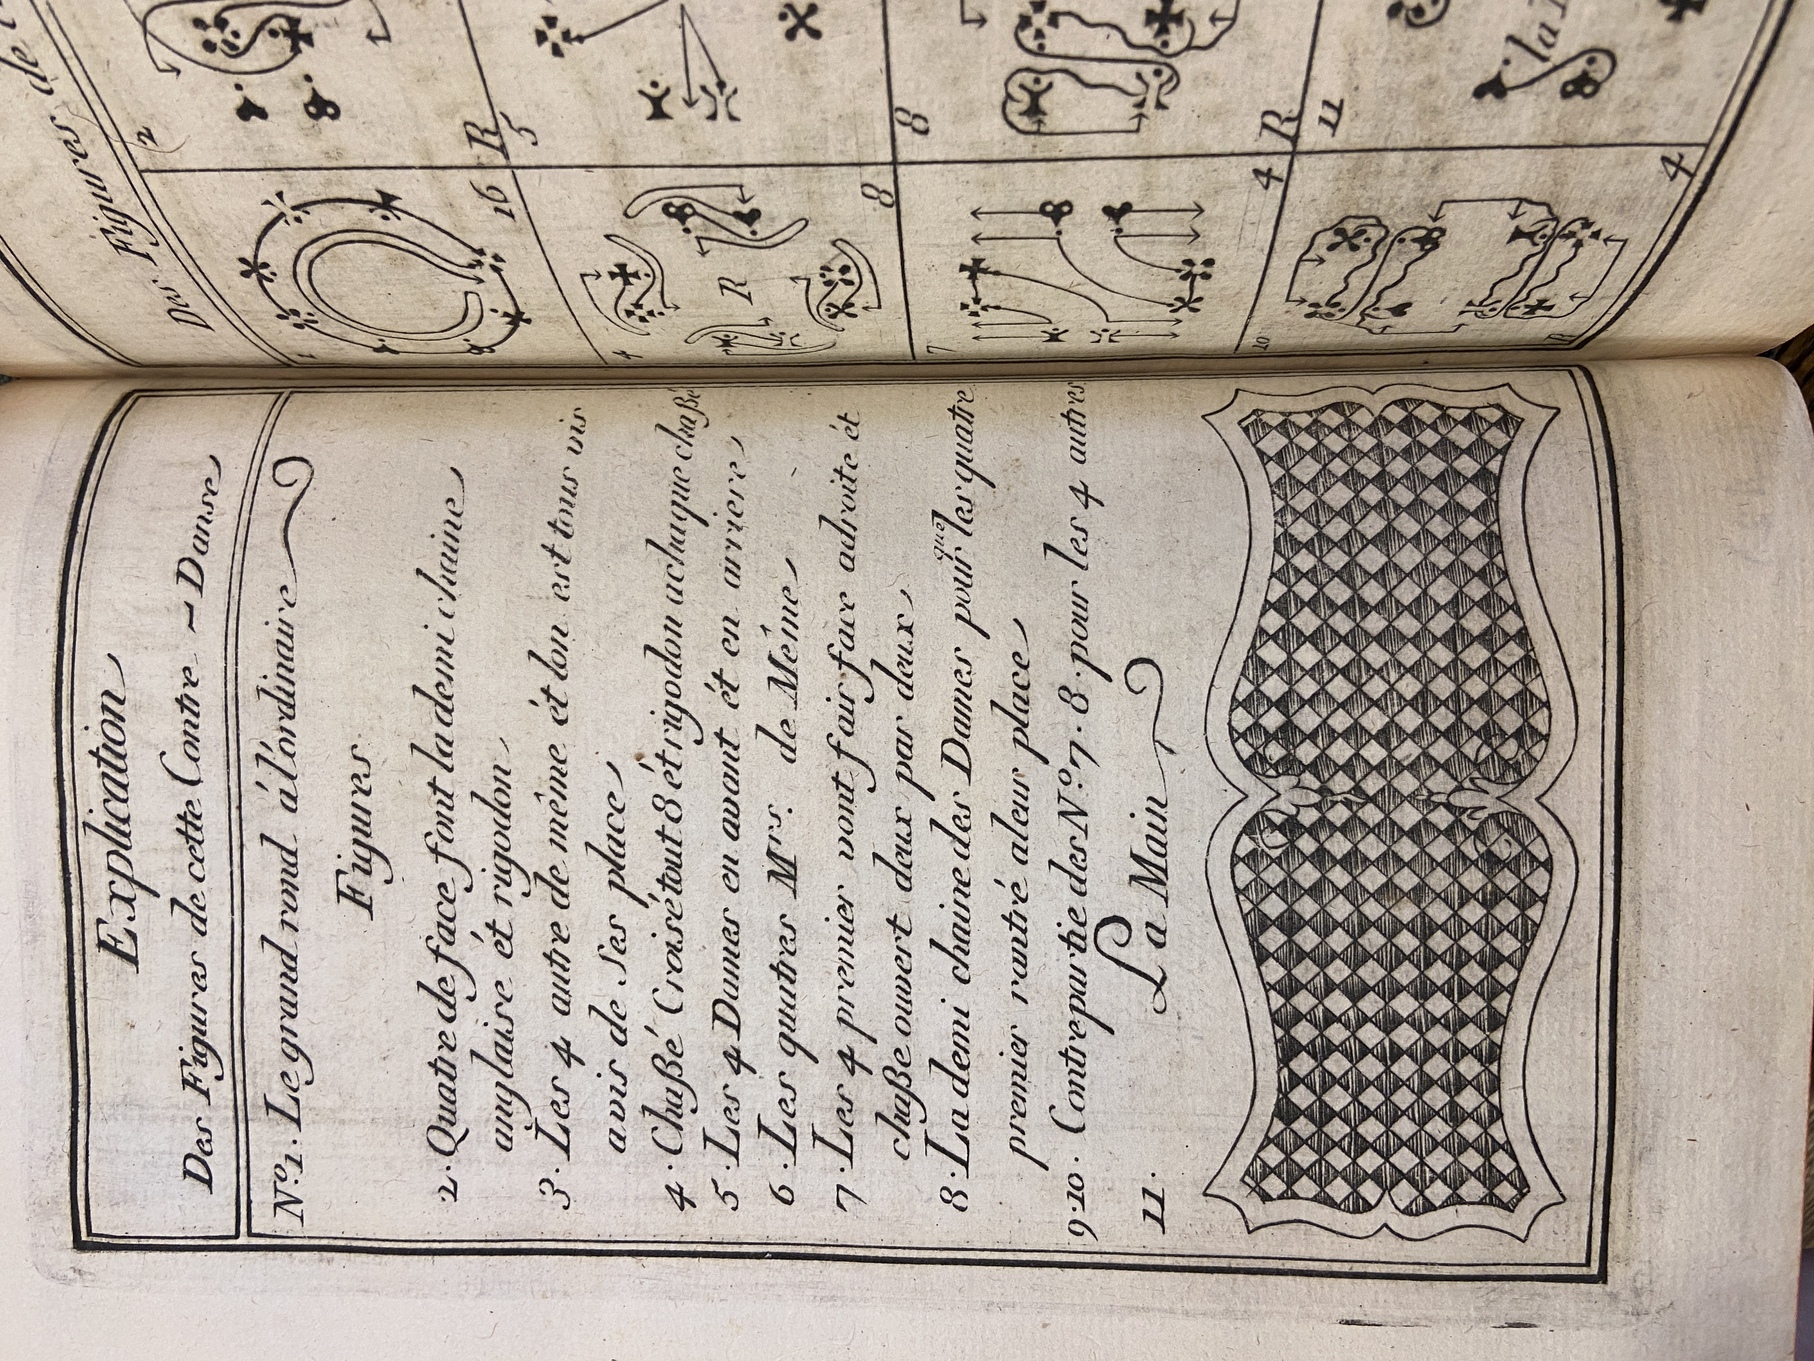 Explication
Des Figures de cette Contre - Danse
N.º1. Le grand rond a l'ordinaire
Figures
2. Quatre de face font la demi chaine
anglaise ét rigodon
3. Les 4 autre de même ét lon est tous vis
avis de ses place
4. Chaßé Croisé tout 8 ét rigodon achaque chaßé
5. Les 4 Dames en avant ét en arriere
6. Les quatres Mrs. de Même
7. Les 4 premier vont fair face adroite ét
chaße ouvert deux par deux
8. La demi chaine des Dames pour que les quatre
premier rantré aleur place
9.10. Contrepartie des N.º 7. 8. pour les 4 autres
11. La Main
Des Figures de
1
16
2
R
4
R
8
5
7
4
8
R
10
R
4
11
la